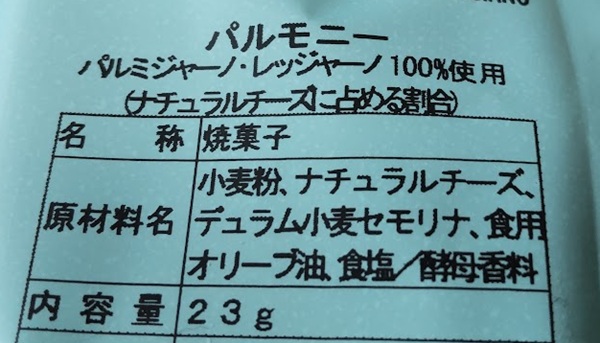 パルモニー
パルミジャーノ・レッジャーノ100%使用
(ナチュラルチーズに占める割合)
名称 焼菓子
原材料名 小麦粉、ナチュラルチーズ、
デュラム小麦セモリナ、食用
オリーブ油、食塩／酵母香料
内容量 23g